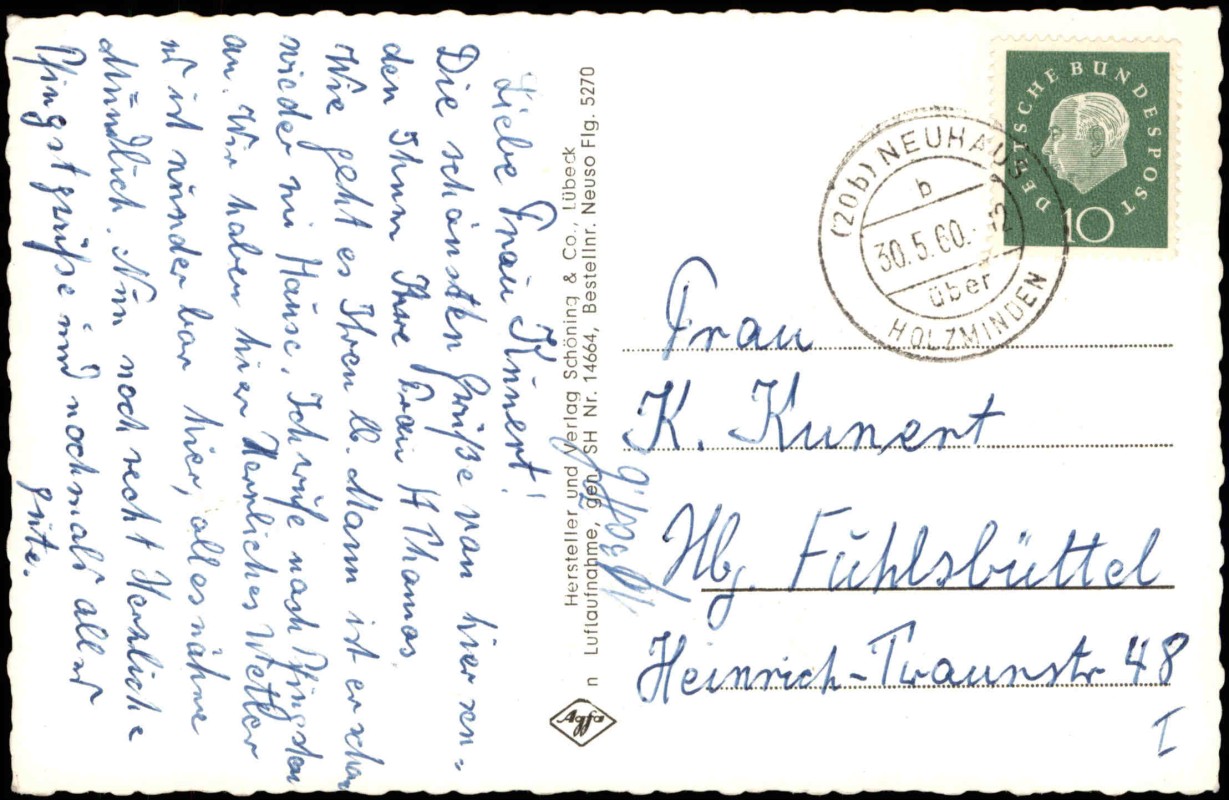 Liebe Frau Kunert!
Die schönsten Grüße von hier sen-
den Ihnen Ihre Frau H Thomas.
Wie geht es Ihren lb. Mann ist er schon
wieder mi Hause. Ich rufe nach Pfingsten
an. Wir haben hier Herrliches Wetter
es ist wunder bar hier, alles nähre
Mündlich. Nun noch recht Herzliche
Pfingstgrüße und nochmals alles
gute.
Hersteller und Verlag Schöning & Co., Lübeck
n Luftaufnahme, gen. SH Nr. 14664, Bestellnr. Neuso Flg. 5270
Agfa
DEUTSCHE BUNDESPOST
10
(20b) NEUHAUS
b
30.5.60.
über
HOLZMINDEN
Frau
K. Kunert
Hbg. Fuhlsbüttel
Heinrich-Traunstr 48
I